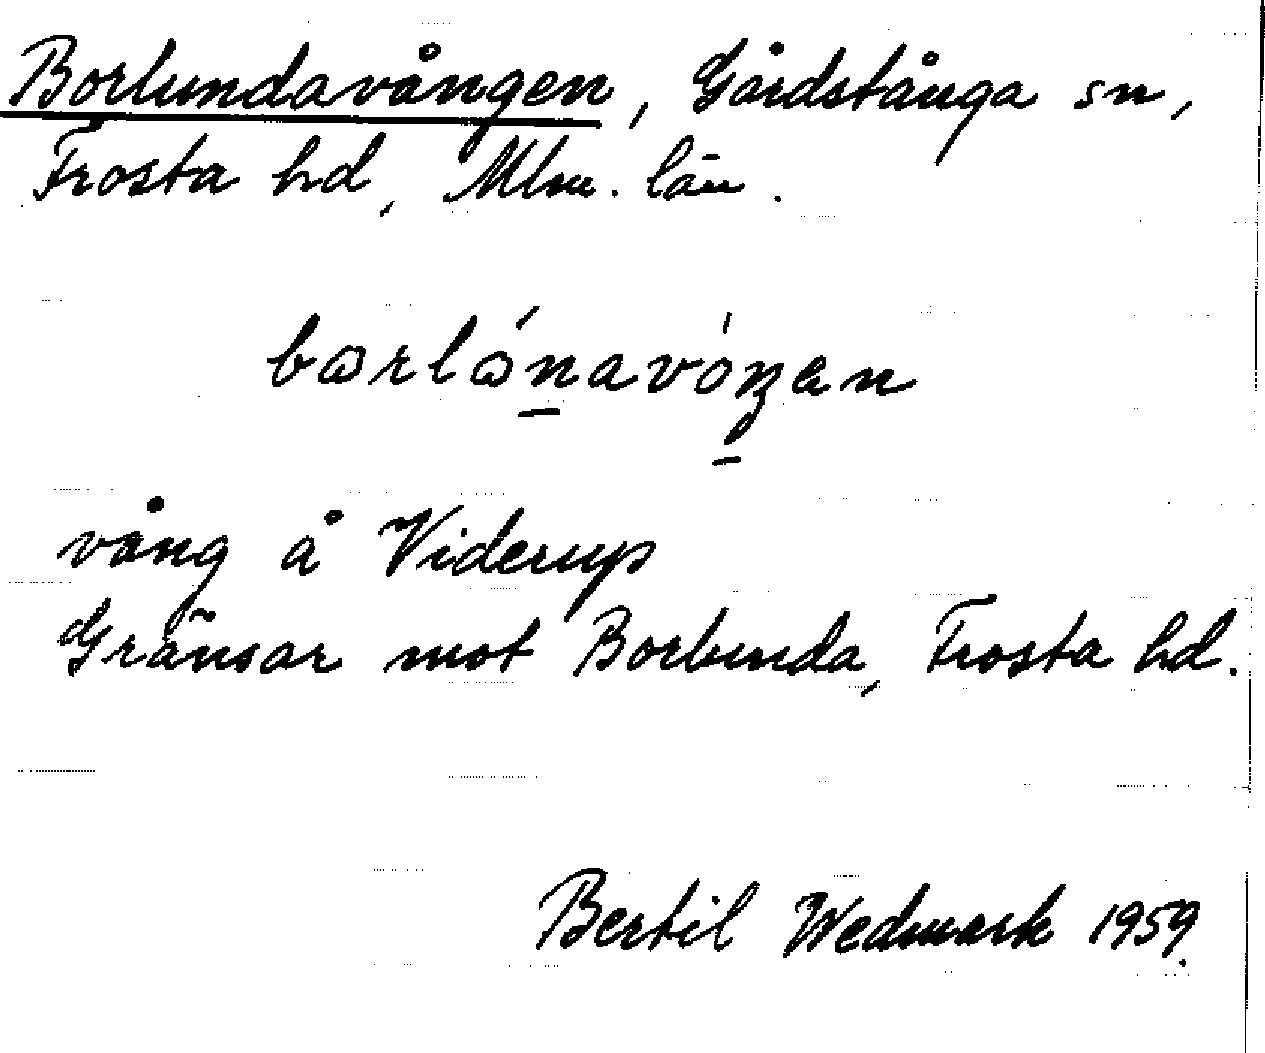 Borlundavången, Gårdstånga sn,
Frosta hd, Mlm. län.
bɷrlɷ́navóŋen
vång å Viderup
Gränsar mot Borlunda, Frosta hd.
Bertil Wedmark 1959.